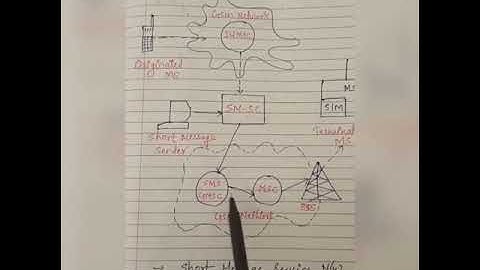 Gsm Network
IWMSC
Originated
MS
SM-SC
MS
SIM
Short Message
Sender
Terminated
MS
SMS
GMSC
MSC
BSS
Gsm Network
→ Short Message Service N/w